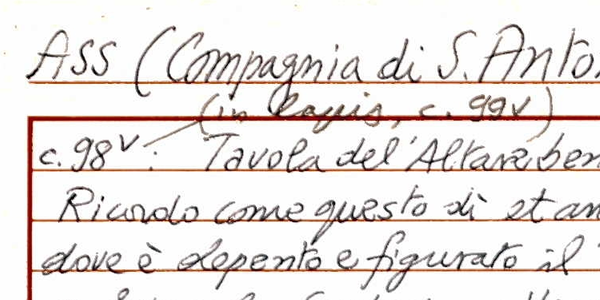 ASS (Compagnia di S. Anto
(in lapis, c. 99v)
c. 98v: Tavola del'Altare ben
Ricordo come questo dì et an
dove è depento e figurato il